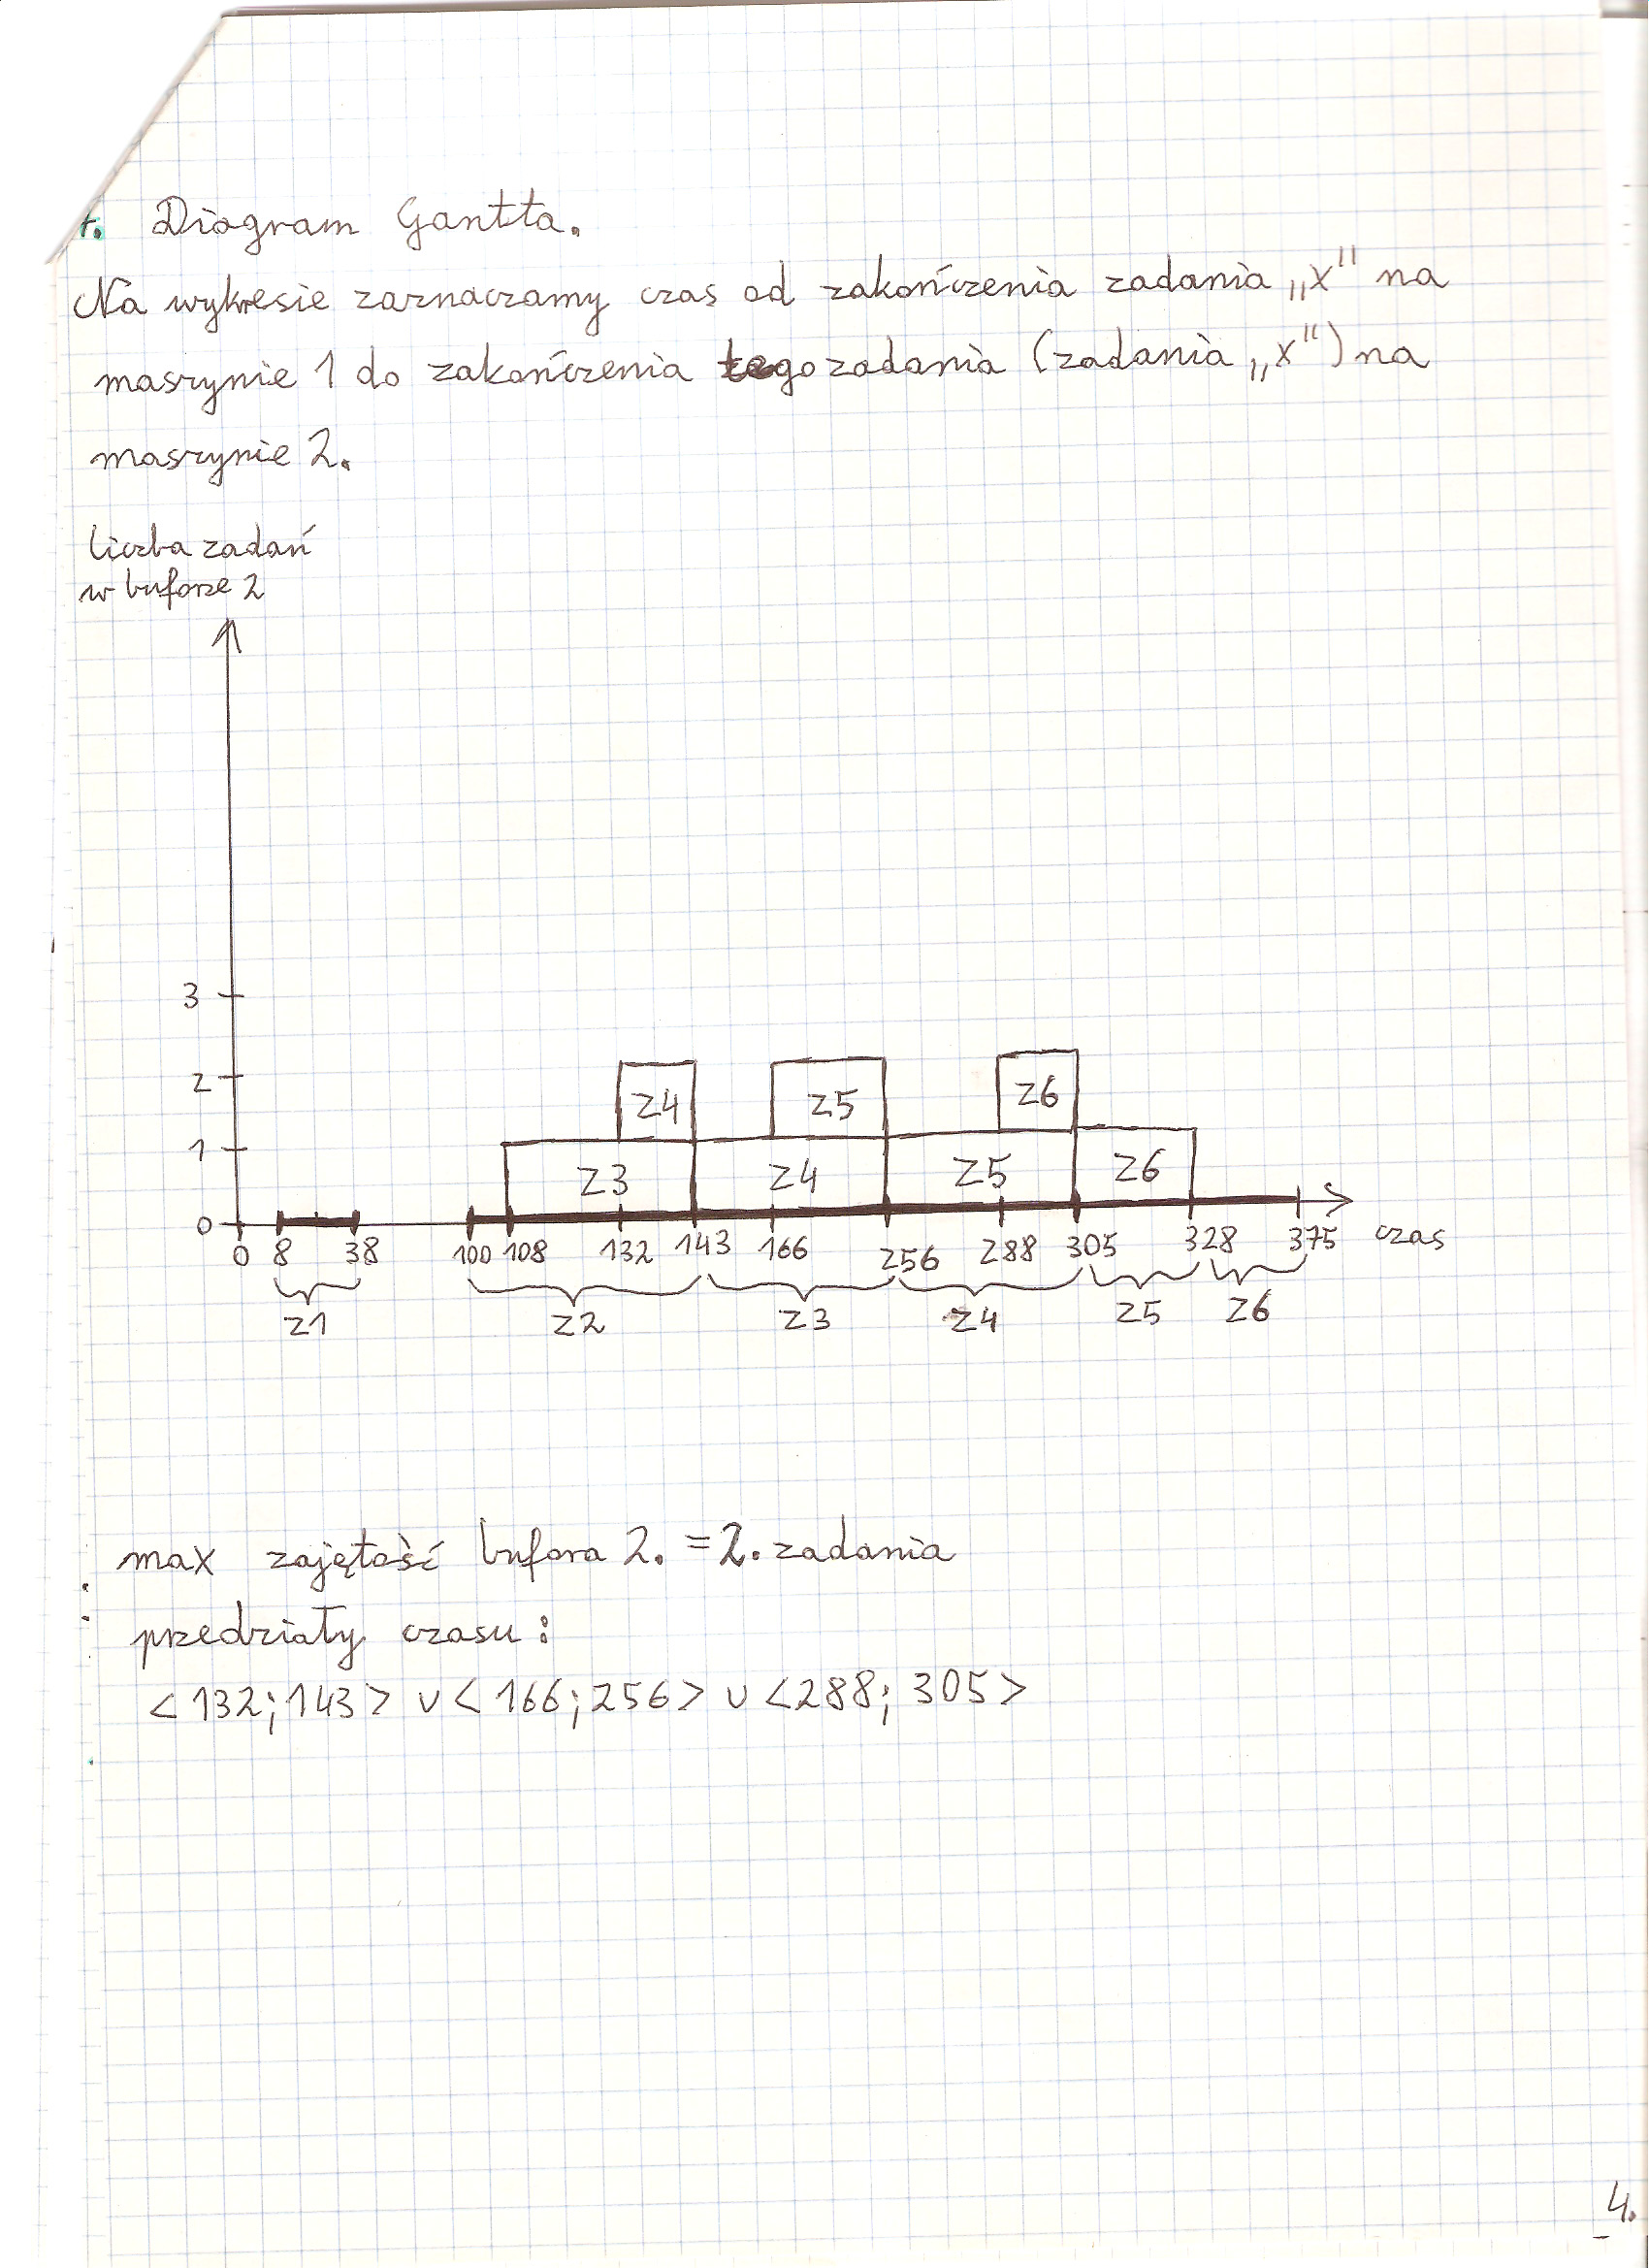 Diagram Gantta.
Na wykresie zaznaczamy czas od zakończenia zadania „x" na
maszynie 1 do zakończenia tego zadania (zadania „x") na
maszynie 2.
liczba zadań
w buforze 2
3
2
Z4 Z5 Z6
1
Z3 Z4 Z5 Z6
0
0 8 38 100 108 132 143 166 256 288 305 328 375 czas
Z1 Z2 Z3 Z4 Z5 Z6
max zajętość bufora 2. = 2. zadania
przedziały czasu:
<132;143> ∪ <166;256> ∪ <288; 305>
4.